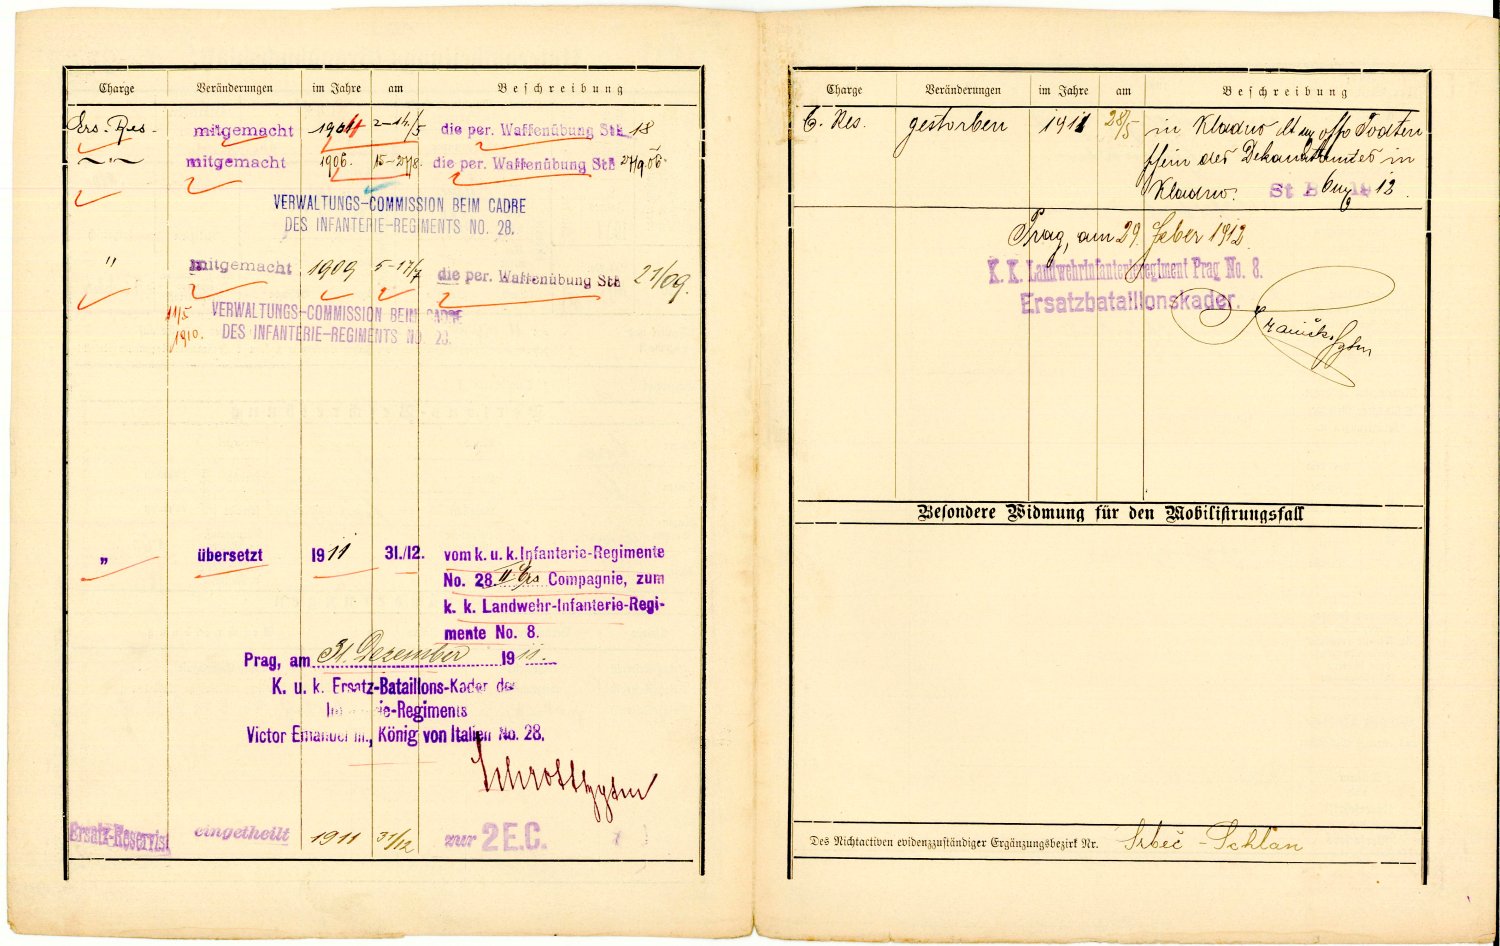 Charge Veränderungen im Jahre am Beschreibung
Ers. Res. mitgemacht 1904 2–14/5 die per. Waffenübung Stk 18
〃 mitgemacht 1906. 15–27/8. die per. Waffenübung Stk 27/9.06.
VERWALTUNGS-COMMISSION BEIM CADRE
DES INFANTERIE-REGIMENTS NO. 28.
" mitgemacht 1909 5–17/7 die per. Waffenübung Stk 27/09.
11/5 VERWALTUNGS-COMMISSION BEIM CADRE
1910. DES INFANTERIE-REGIMENTS NO 28.
" übersetzt 1911 31./12. vom k. u. k. Infanterie-Regimente
No. 28 Compagnie, zum
k. k. Landwehr-Infanterie-Regi-
mente No. 8.
Prag, am 31. Dezember 1911.
K. u. k. Ersatz-Bataillons-Kader des
Infanterie-Regiments
Victor Emanuel III., König von Italien No. 28.
Ersatz-Reservist eingetheilt 1911 31/12 zur 2 E.C.
Charge Veränderungen im Jahre am Beschreibung
E. Res. gestorben 1911 28/5 in Kladno Todten
schein des Dekanatamtes in
Kladno. St 12.
Prag, am 29. Feber 1912.
K. K. Landwehrinfanterieregiment Prag No. 8.
Ersatzbataillonskader.
Besondere Widmung für den Mobilisirungsfall
Des Nichtactiven evidenzzuständiger Ergänzungsbezirk Nr. Srbeč - Schlan